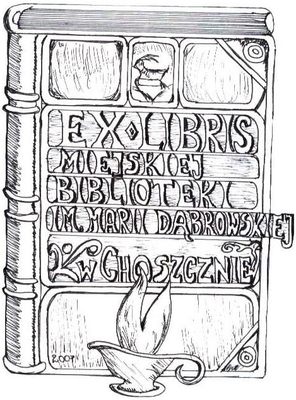 EX LIBRIS
MIEJSKIEJ
BIBLIOTEKI
IM. MARII DĄBROWSKIEJ
W CHOSZCZNIE
2007